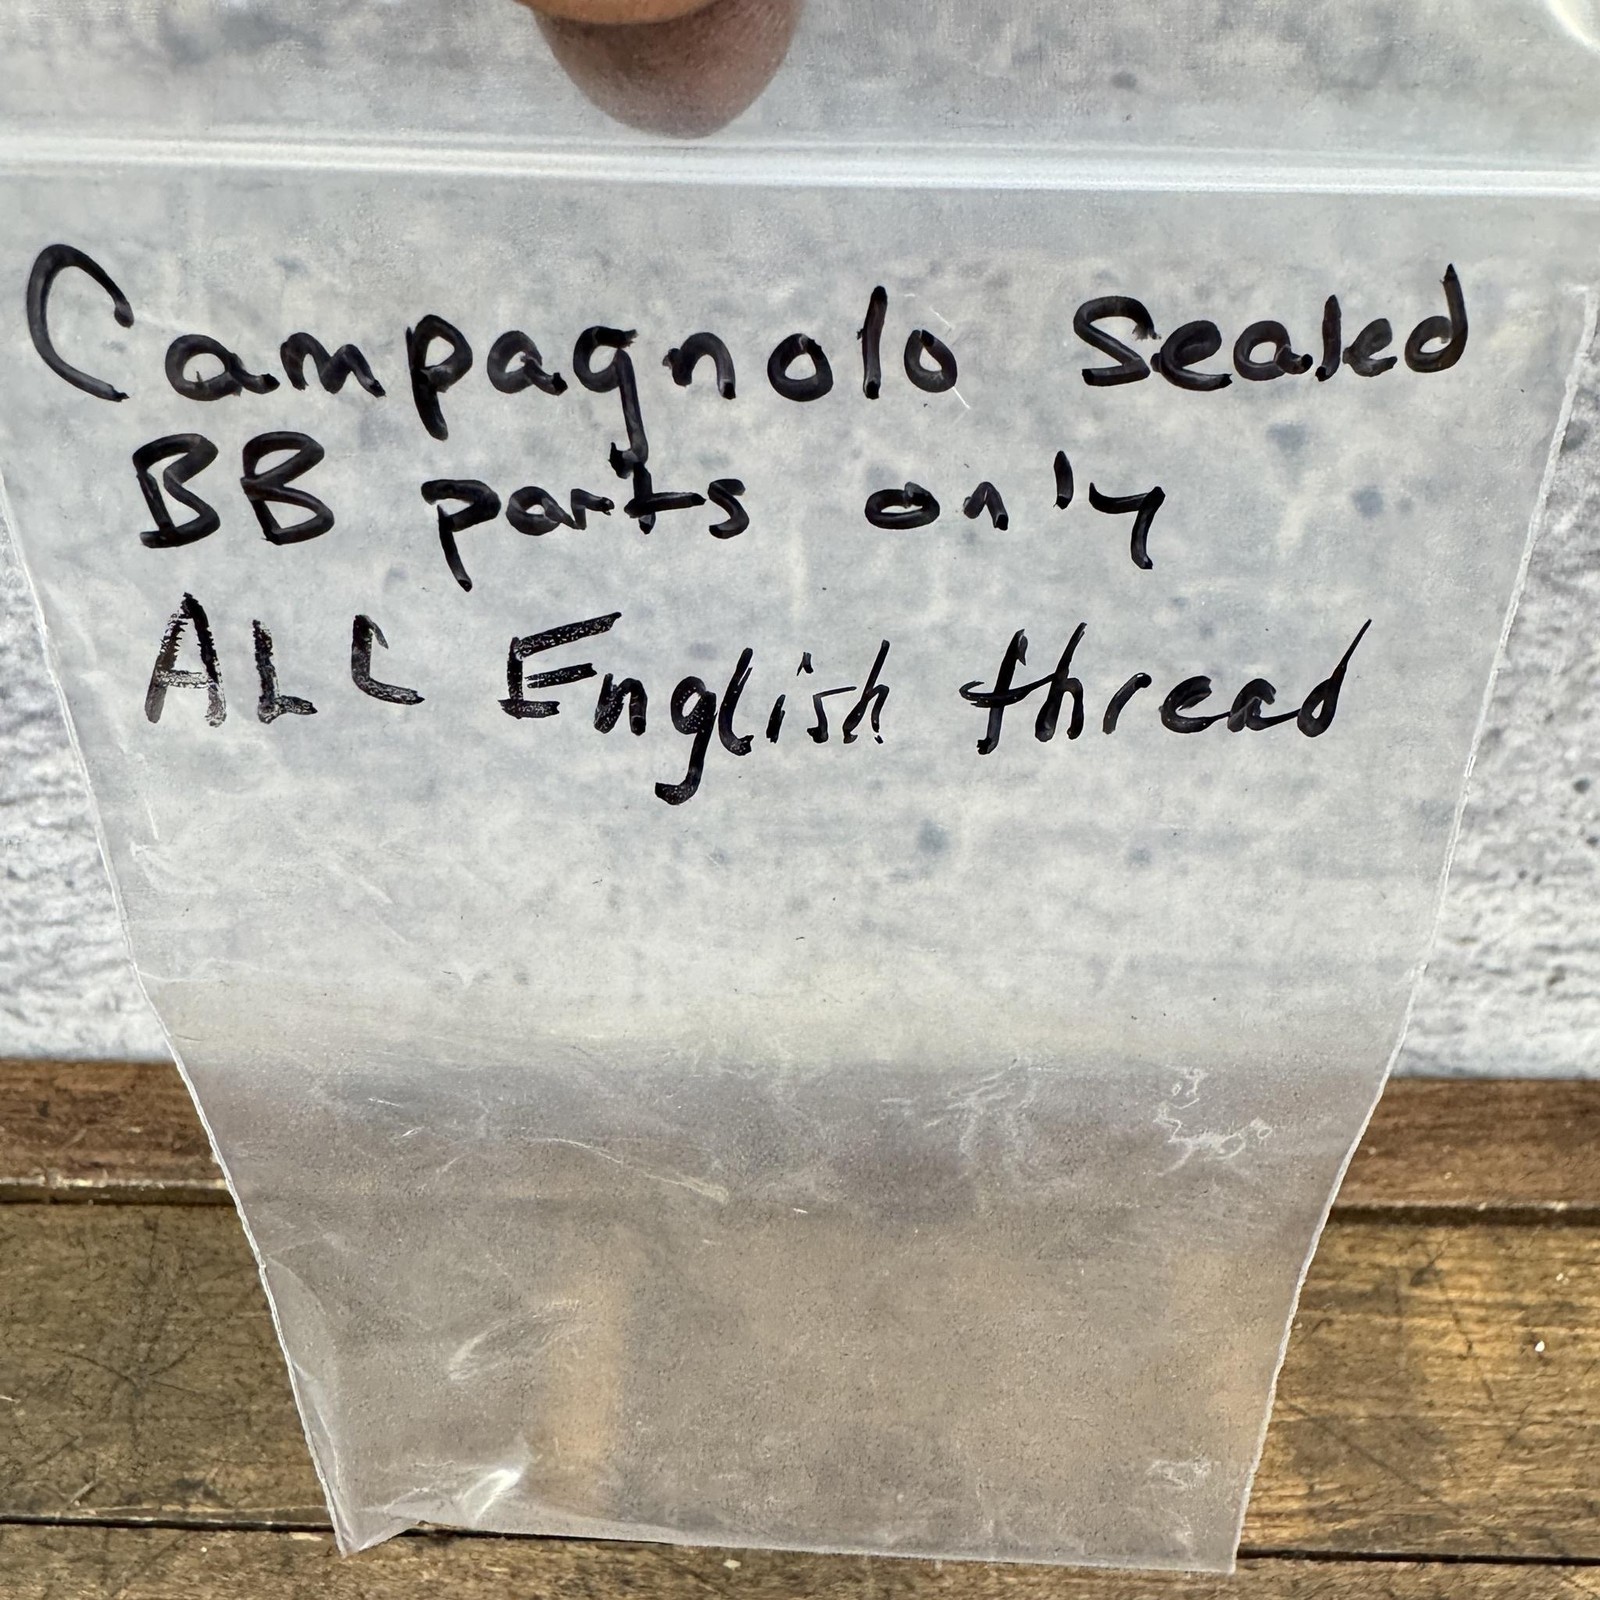 Campagnolo Sealed
BB parts only
ALL English thread